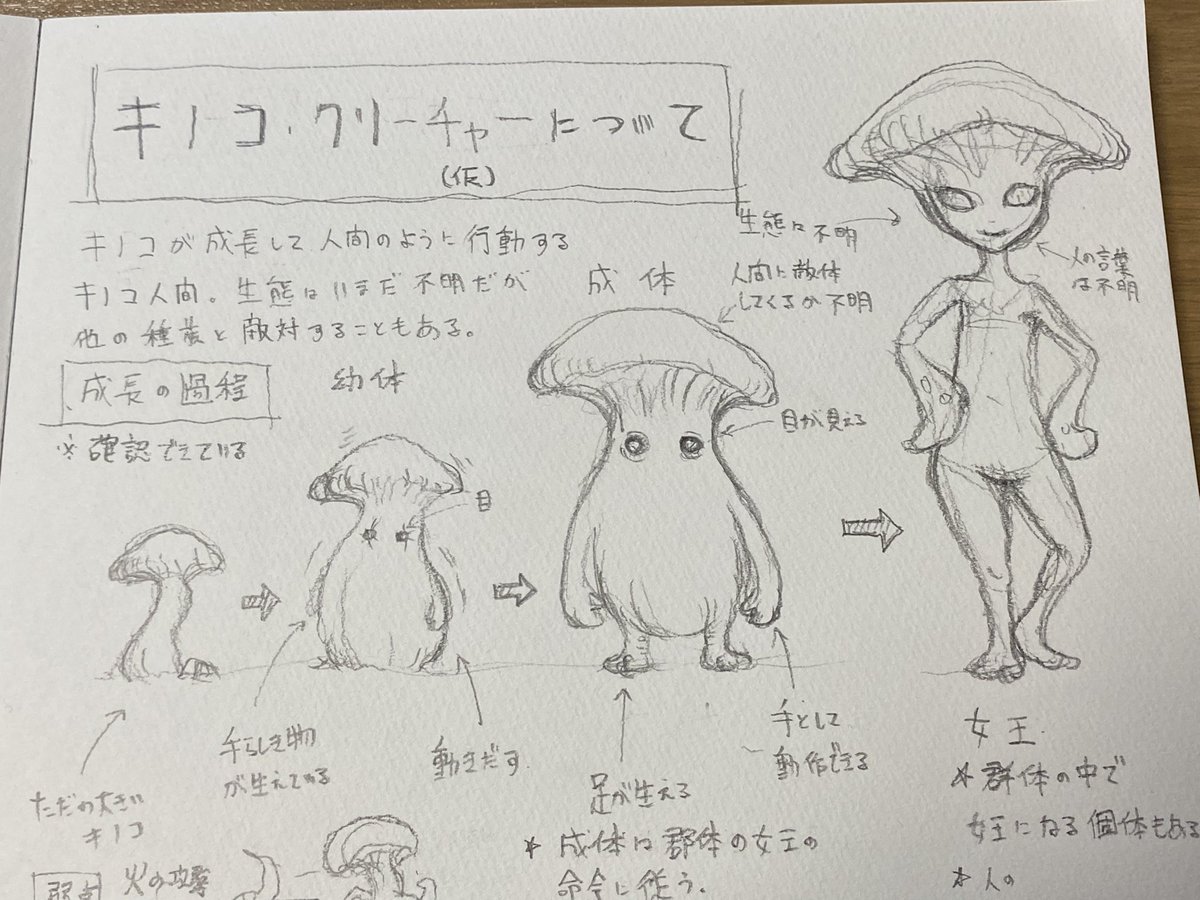 キノコ・クリーチャーについて
(仮)
キノコが成長して人間のように行動する
キノコ人間。生態はいまだ不明だが
他の種族と敵対することもある。
成長の過程
※確認できている
幼体
成体
生態は不明
人の言葉
は不明
人間に敵体
してくるか不明
目が見える
目
ただの大きい
キノコ
手らしき物
が生えている
動きだす
足が生える
手として
動作できる
*成体は群体の女王の
命令に従う。
女王
*群体の中で
女王になる個体もある
*人の
弱点
火の攻撃